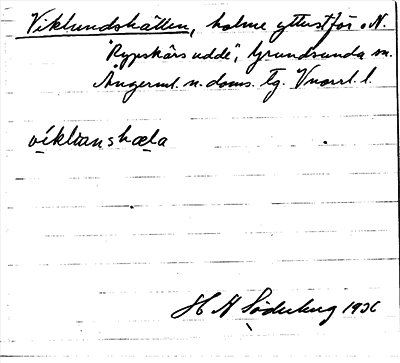 Viklundskällen, holme ytterst för "N.
Rypskärs udde", Grundsunda sn.
Ångerml. n. doms. Tg. Vnorrl. l.
víklɯanshæla
H A Söderberg 1936